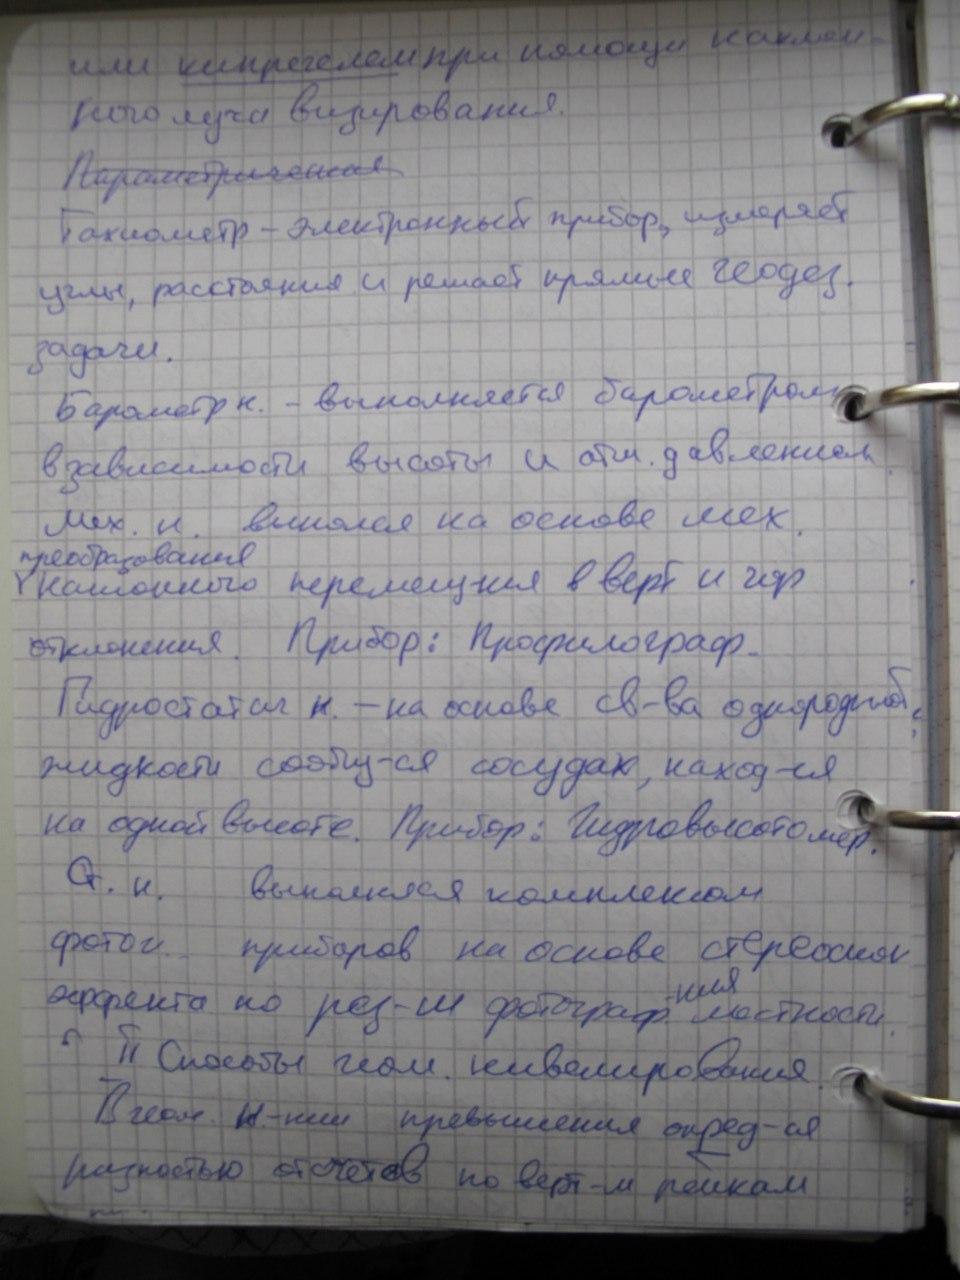 или кипрегелем при помощи наклон-
ного луча визирования.
Параметрическая
Тахиометр - электронный прибор, измеряет
углы, расстояния и решает прямые геодез.
задачи.
Барометр н. - выполняется барометром
в зависимости высоты и атм. давлением.
Мех. н. выполся на основе мех.
преобразования
наклонного перемещния в верт и гор
отклонения. Прибор: Профилограф.
Гидростатич н. - на основе св-ва однородной
жидкости сообщ-ся сосудах, наход-ся
на одной высоте. Прибор: Гидровысотомер.
Ст. н. выполняся комплексом
фотог. приборов на основе стереоскоп
эффекта по рез-м фотограф-ния местности.
II Способы геом. нивелирования.
В геом. н-нии превышения опред-ся
разностью отсчетов по верт-м рейкам